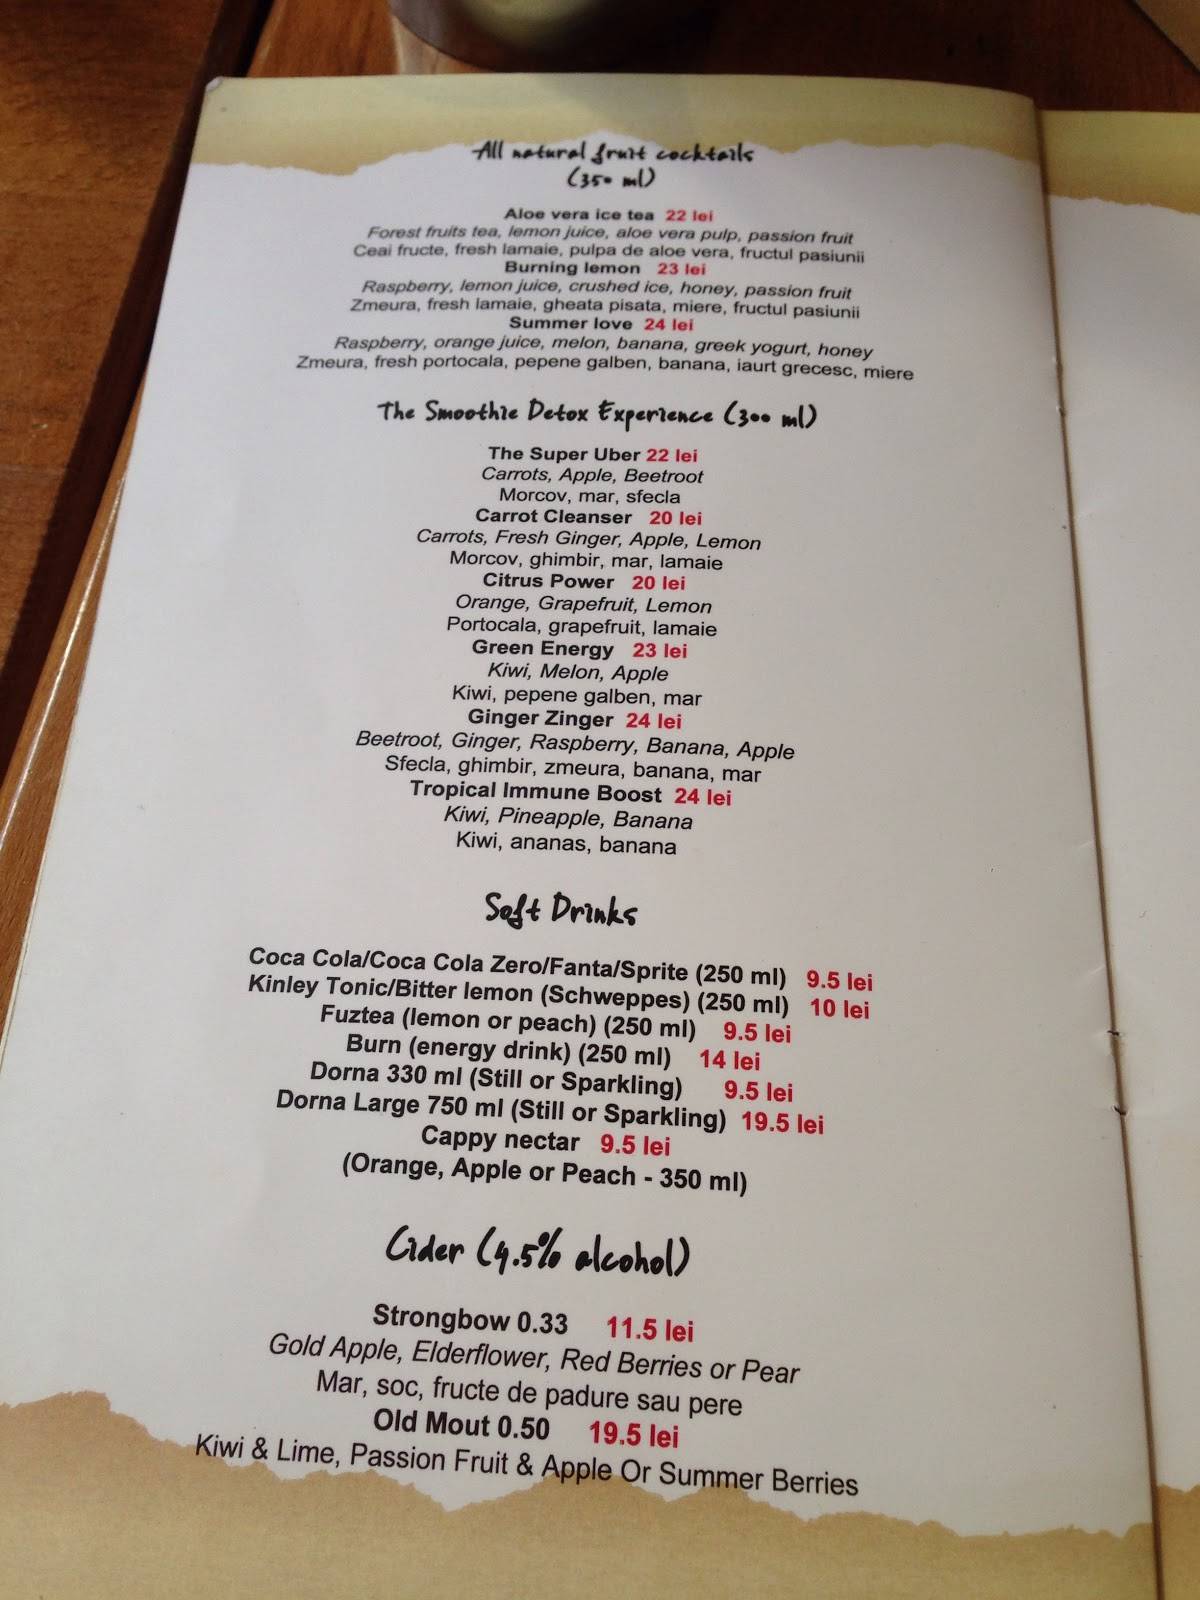 All natural fruit cocktails
(350 ml)
Aloe vera ice tea 22 lei
Forest fruits tea, lemon juice, aloe vera pulp, passion fruit
Ceai fructe, fresh lamaie, pulpa de aloe vera, fructul pasiunii
Burning lemon 23 lei
Raspberry, lemon juice, crushed ice, honey, passion fruit
Zmeura, fresh lamaie, gheata pisata, miere, fructul pasiunii
Summer love 24 lei
Raspberry, orange juice, melon, banana, greek yogurt, honey
Zmeura, fresh portocala, pepene galben, banana, iaurt grecesc, miere
The Smoothie Detox Experience (300 ml)
The Super Uber 22 lei
Carrots, Apple, Beetroot
Morcov, mar, sfecla
Carrot Cleanser 20 lei
Carrots, Fresh Ginger, Apple, Lemon
Morcov, ghimbir, mar, lamaie
Citrus Power 20 lei
Orange, Grapefruit, Lemon
Portocala, grapefruit, lamaie
Green Energy 23 lei
Kiwi, Melon, Apple
Kiwi, pepene galben, mar
Ginger Zinger 24 lei
Beetroot, Ginger, Raspberry, Banana, Apple
Sfecla, ghimbir, zmeura, banana, mar
Tropical Immune Boost 24 lei
Kiwi, Pineapple, Banana
Kiwi, ananas, banana
Soft Drinks
Coca Cola/Coca Cola Zero/Fanta/Sprite (250 ml) 9.5 lei
Kinley Tonic/Bitter lemon (Schweppes) (250 ml) 10 lei
Fuztea (lemon or peach) (250 ml) 9.5 lei
Burn (energy drink) (250 ml) 14 lei
Dorna 330 ml (Still or Sparkling) 9.5 lei
Dorna Large 750 ml (Still or Sparkling) 19.5 lei
Cappy nectar 9.5 lei
(Orange, Apple or Peach - 350 ml)
Cider (4.5% alcohol)
Strongbow 0.33 11.5 lei
Gold Apple, Elderflower, Red Berries or Pear
Mar, soc, fructe de padure sau pere
Old Mout 0.50 19.5 lei
Kiwi & Lime, Passion Fruit & Apple Or Summer Berries